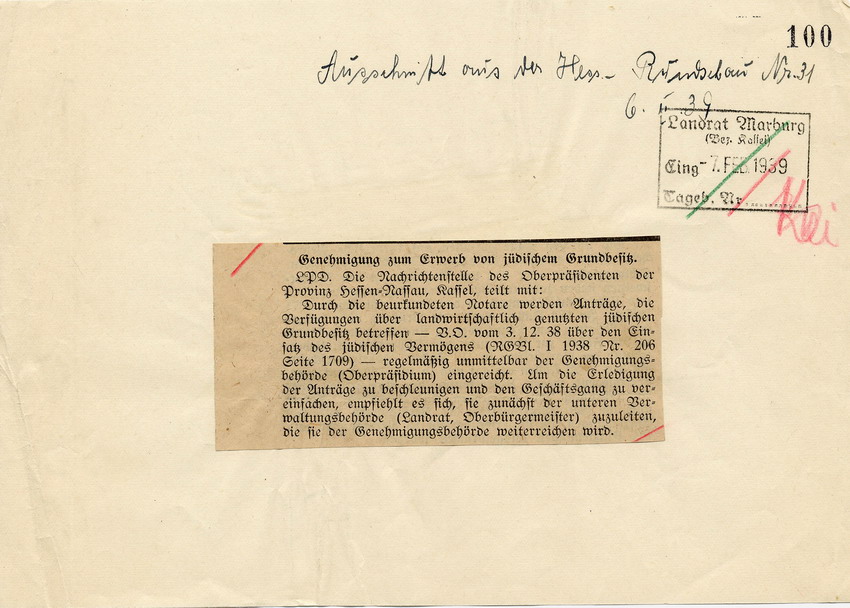 100
Ausschnitt aus der Hess. Rundschau Nr. 31
6. II. 39
Landrat Marburg
(Bez. Kassel)
Eing. - 7. FEB. 1939
Tageb. Nr.
Genehmigung zum Erwerb von jüdischem Grundbesitz.
LPD. Die Nachrichtenstelle des Oberpräsidenten der
Provinz Hessen-Nassau, Kassel, teilt mit:
Durch die beurkundeten Notare werden Anträge, die
Verfügungen über landwirtschaftlich genutzten jüdischen
Grundbesitz betreffen — V.O. vom 3. 12. 38 über den Ein-
satz des jüdischen Vermögens (RGBl. I 1938 Nr. 206
Seite 1709) — regelmäßig unmittelbar der Genehmigungs-
behörde (Oberpräsidium) eingereicht. Um die Erledigung
der Anträge zu beschleunigen und den Geschäftsgang zu ver-
einfachen, empfiehlt es sich, sie zunächst der unteren Ver-
waltungsbehörde (Landrat, Oberbürgermeister) zuzuleiten,
die sie der Genehmigungsbehörde weiterreichen wird.